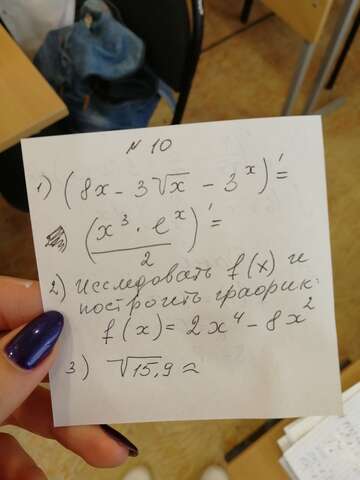 N 10
1) (8x - 3√x - 3^x)' =
(x³ · e^x / 2)' =
2) Исследовать f(x) и
построить график:
f(x) = 2x⁴ - 8x²
3) √15,9 ≈